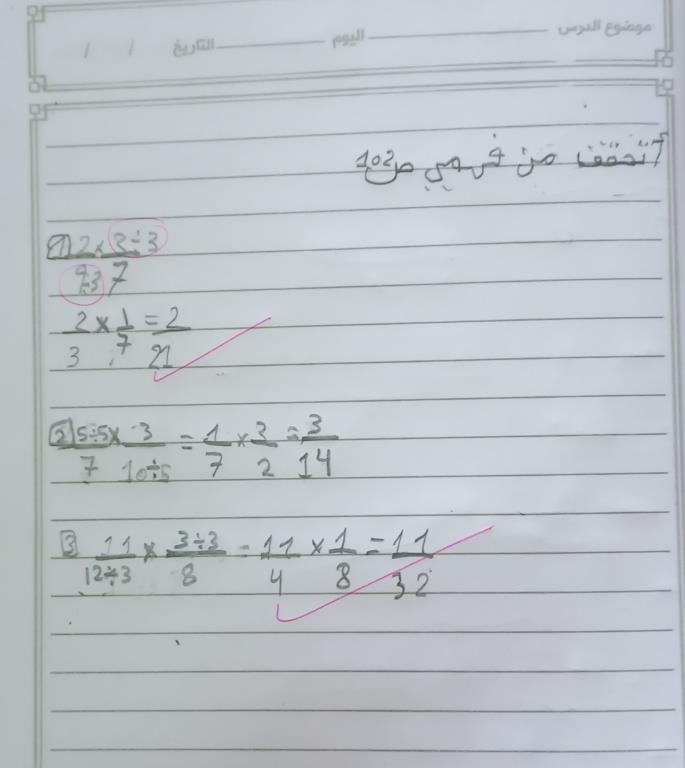 موضوع الدرس اليوم التاريخ / /
أتحقق من فهمي ص102
1 2/9÷3 × 3÷3/7
2/3 × 1/7 = 2/21
2 5÷5/7 × 3/10÷5 = 1/7 × 3/2 = 3/14
3 11/12÷3 × 3÷3/8 = 11/4 × 1/8 = 11/32